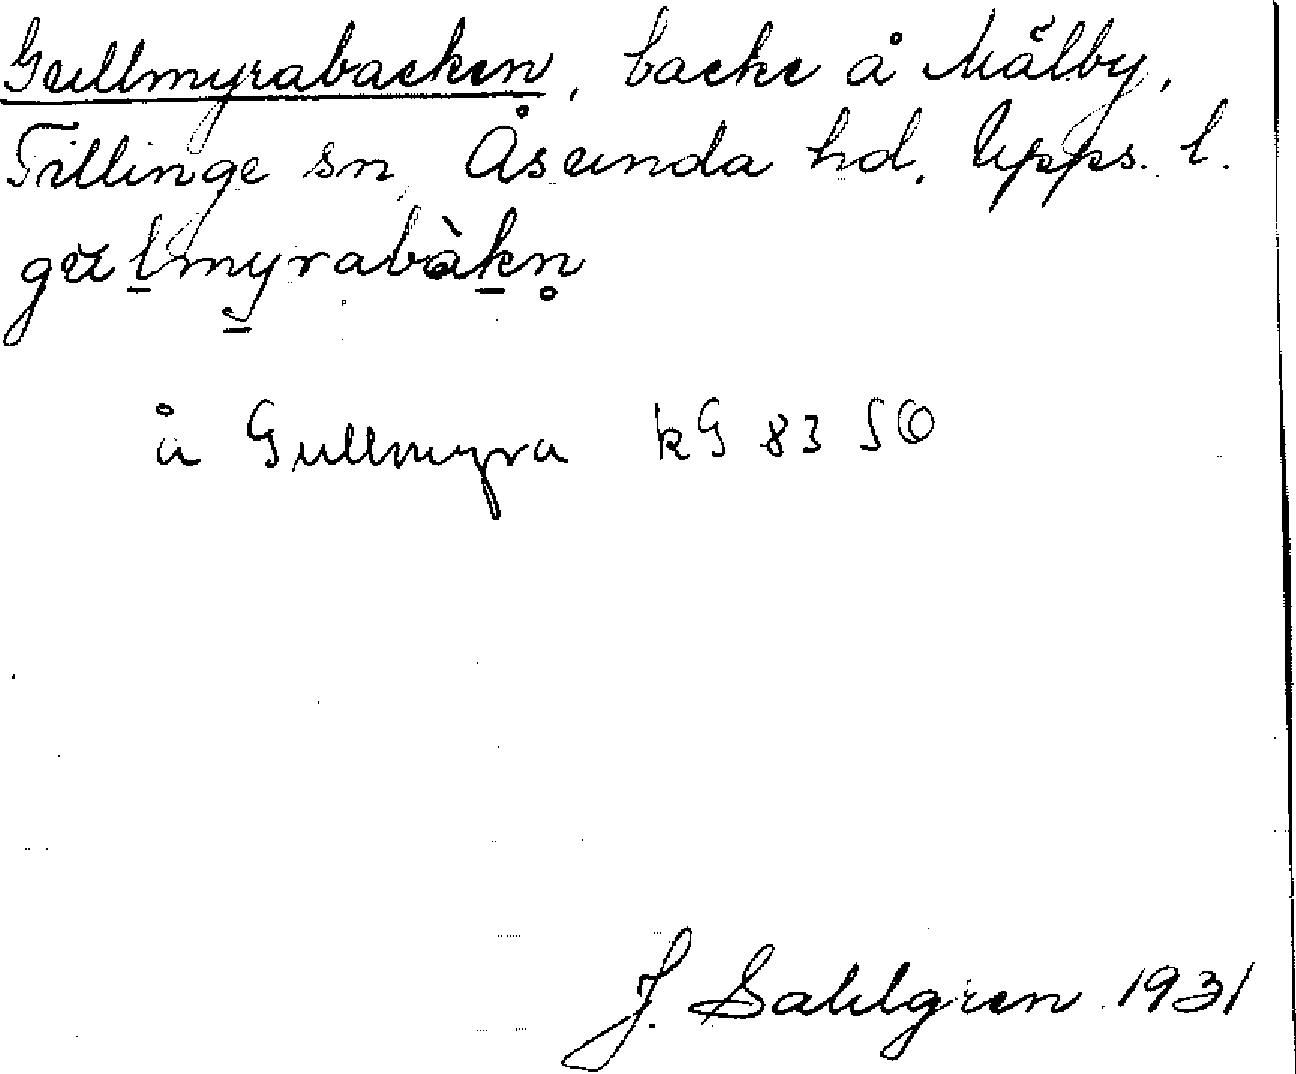 Gullmyrabacken, backe å Mälby,
Tillinge sn, Åsunda hd. Upps. l.
å Gullmyra kG 83 SO
J. Sahlgren 1931